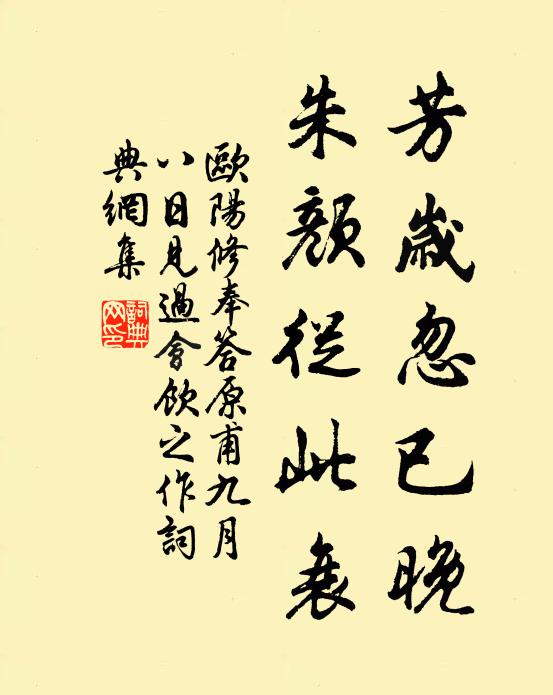 芳歲忽已晚
朱顏從此衰
歐陽修奉答原甫九月
八日見過會飲之作詞
典網集
詞典
網印